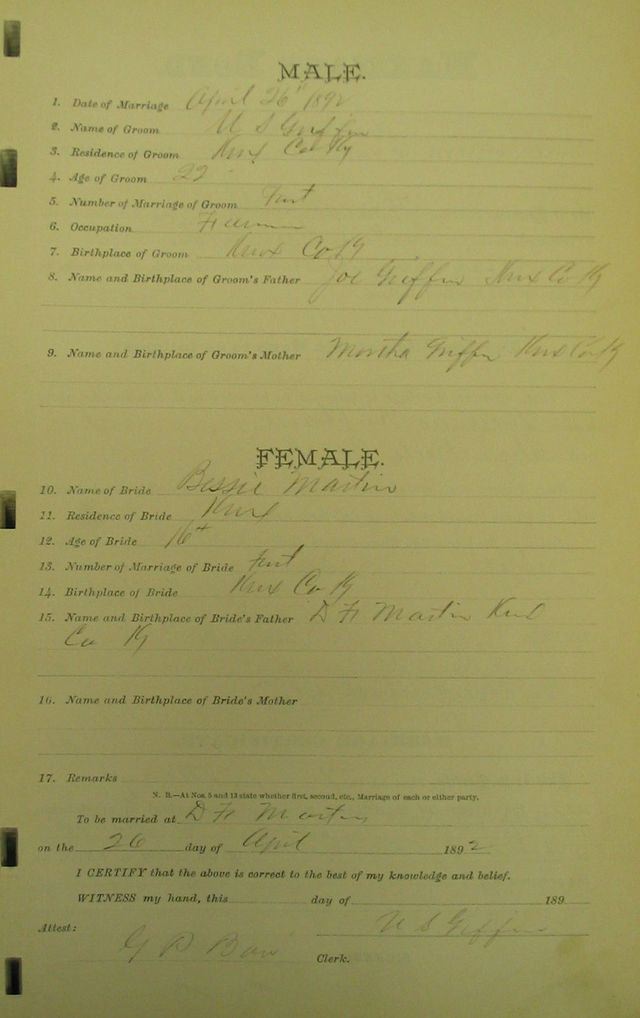 MALE.
1. Date of Marriage April 26" 1892
2. Name of Groom U S Griffin
3. Residence of Groom Knox Co Ky
4. Age of Groom 22
5. Number of Marriage of Groom First
6. Occupation Farmer
7. Birthplace of Groom Knox Co Ky
8. Name and Birthplace of Groom's Father Joe Griffin Knox Co Ky
9. Name and Birthplace of Groom's Mother Martha Griffin Knox Co Ky
FEMALE.
10. Name of Bride Bessie Martin
11. Residence of Bride Knox
12. Age of Bride 16
13. Number of Marriage of Bride First
14. Birthplace of Bride Knox Co Ky
15. Name and Birthplace of Bride's Father D F Martin Knox
Co Ky
16. Name and Birthplace of Bride's Mother
17. Remarks
N. B.—At Nos. 5 and 13 state whether first, second, etc., Marriage of each or either party.
To be married at D F Martins
on the 26 day of April 1892
I CERTIFY that the above is correct to the best of my knowledge and belief.
WITNESS my hand, this day of 189
Attest: U S Griffin
G B Clerk.